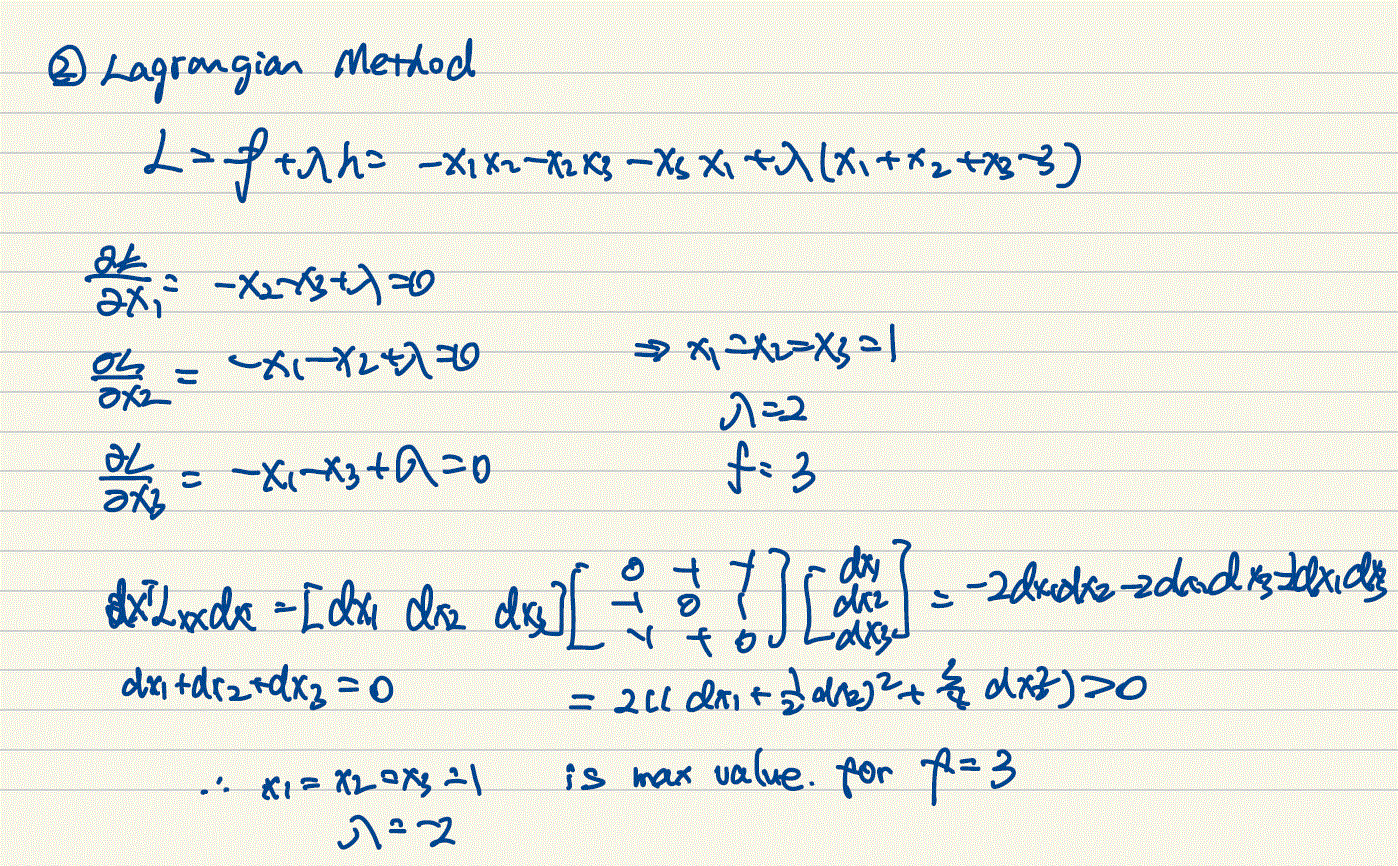 ② Lagrangian Method
L = f + λh = -x₁x₂ - x₂x₃ - x₃x₁ + λ(x₁ + x₂ + x₃ - 3)
∂L/∂x₁ = -x₂ - x₃ + λ = 0
∂L/∂x₂ = -x₁ - x₂ + λ = 0 ⇒ x₁ = x₂ = x₃ = 1
λ = 2
∂L/∂x₃ = -x₁ - x₃ + λ = 0 f = 3
dxᵀLₓₓdx = [dx₁ dx₂ dx₃] [0 -1 -1; -1 0 1; -1 -1 0] [dx₁; dx₂; dx₃] = -2dx₁dx₂ - 2dx₂dx₃ - 2dx₁dx₃
dx₁ + dx₂ + dx₃ = 0 = 2((dx₁ + ½dx₂)² + dx₂²) > 0
∴ x₁ = x₂ = x₃ = 1 is max value. for f = 3
λ = -2